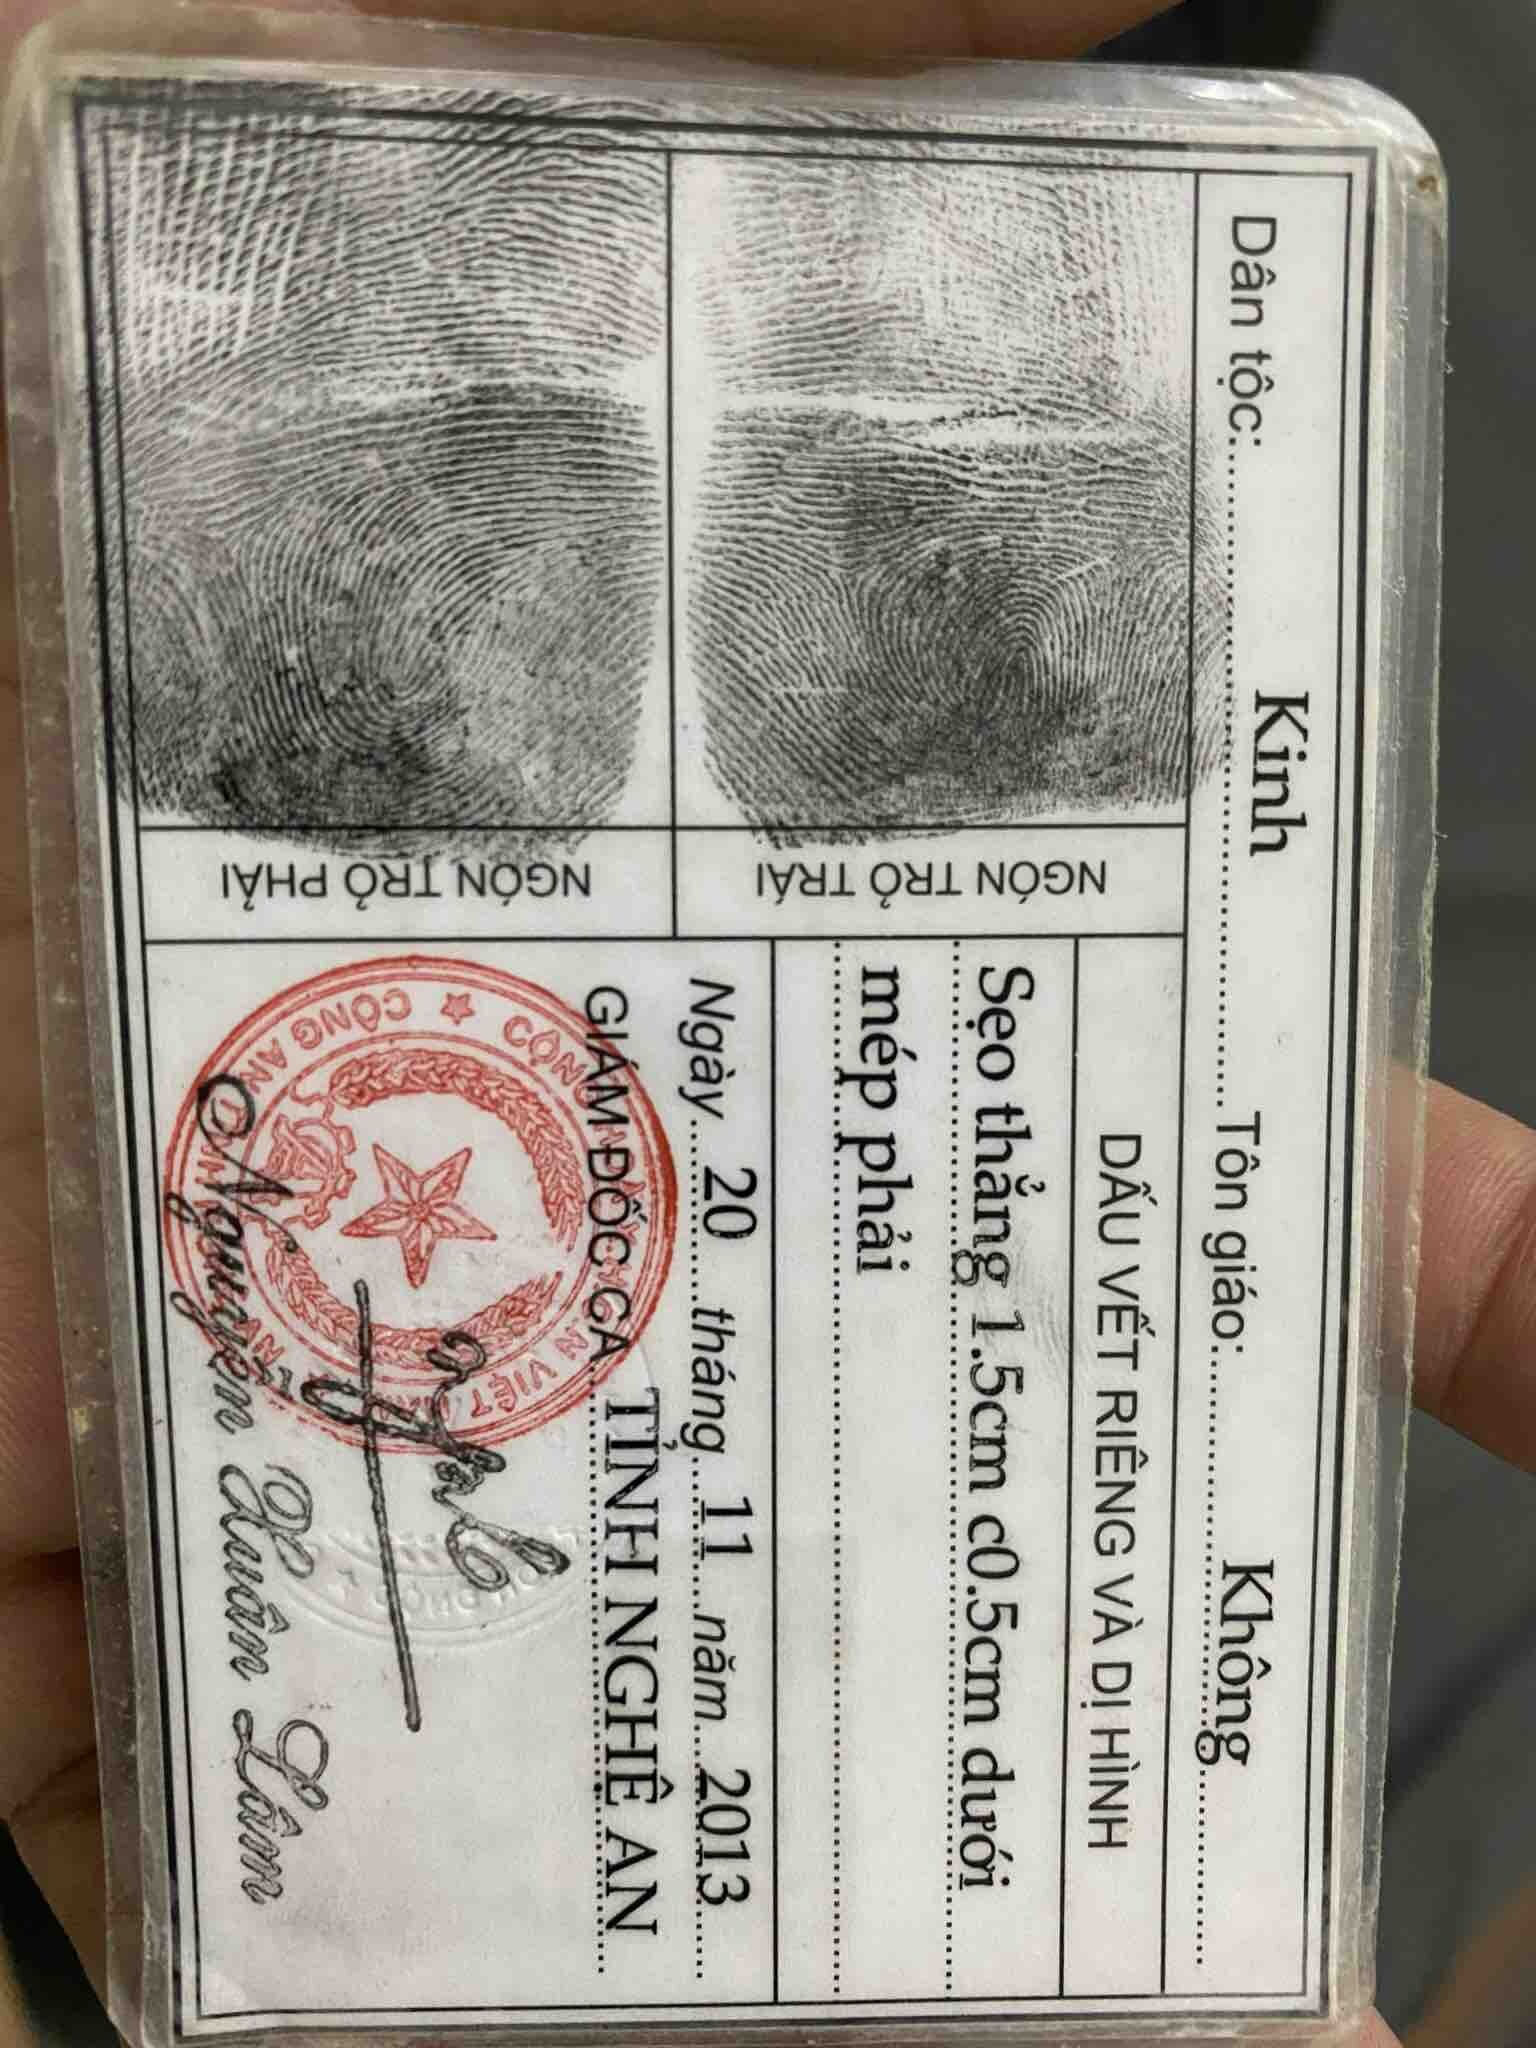 Dân tộc: Kinh Tôn giáo: Không
NGÓN TRỎ TRÁI
NGÓN TRỎ PHẢI
DẤU VẾT RIÊNG VÀ DỊ HÌNH
Sẹo thẳng 1.5cm c0.5cm dưới
mép phải
Ngày 20 tháng 11 năm 2013
GIÁM ĐỐC CA TỈNH NGHỆ AN
Nguyễn Xuân Lâm